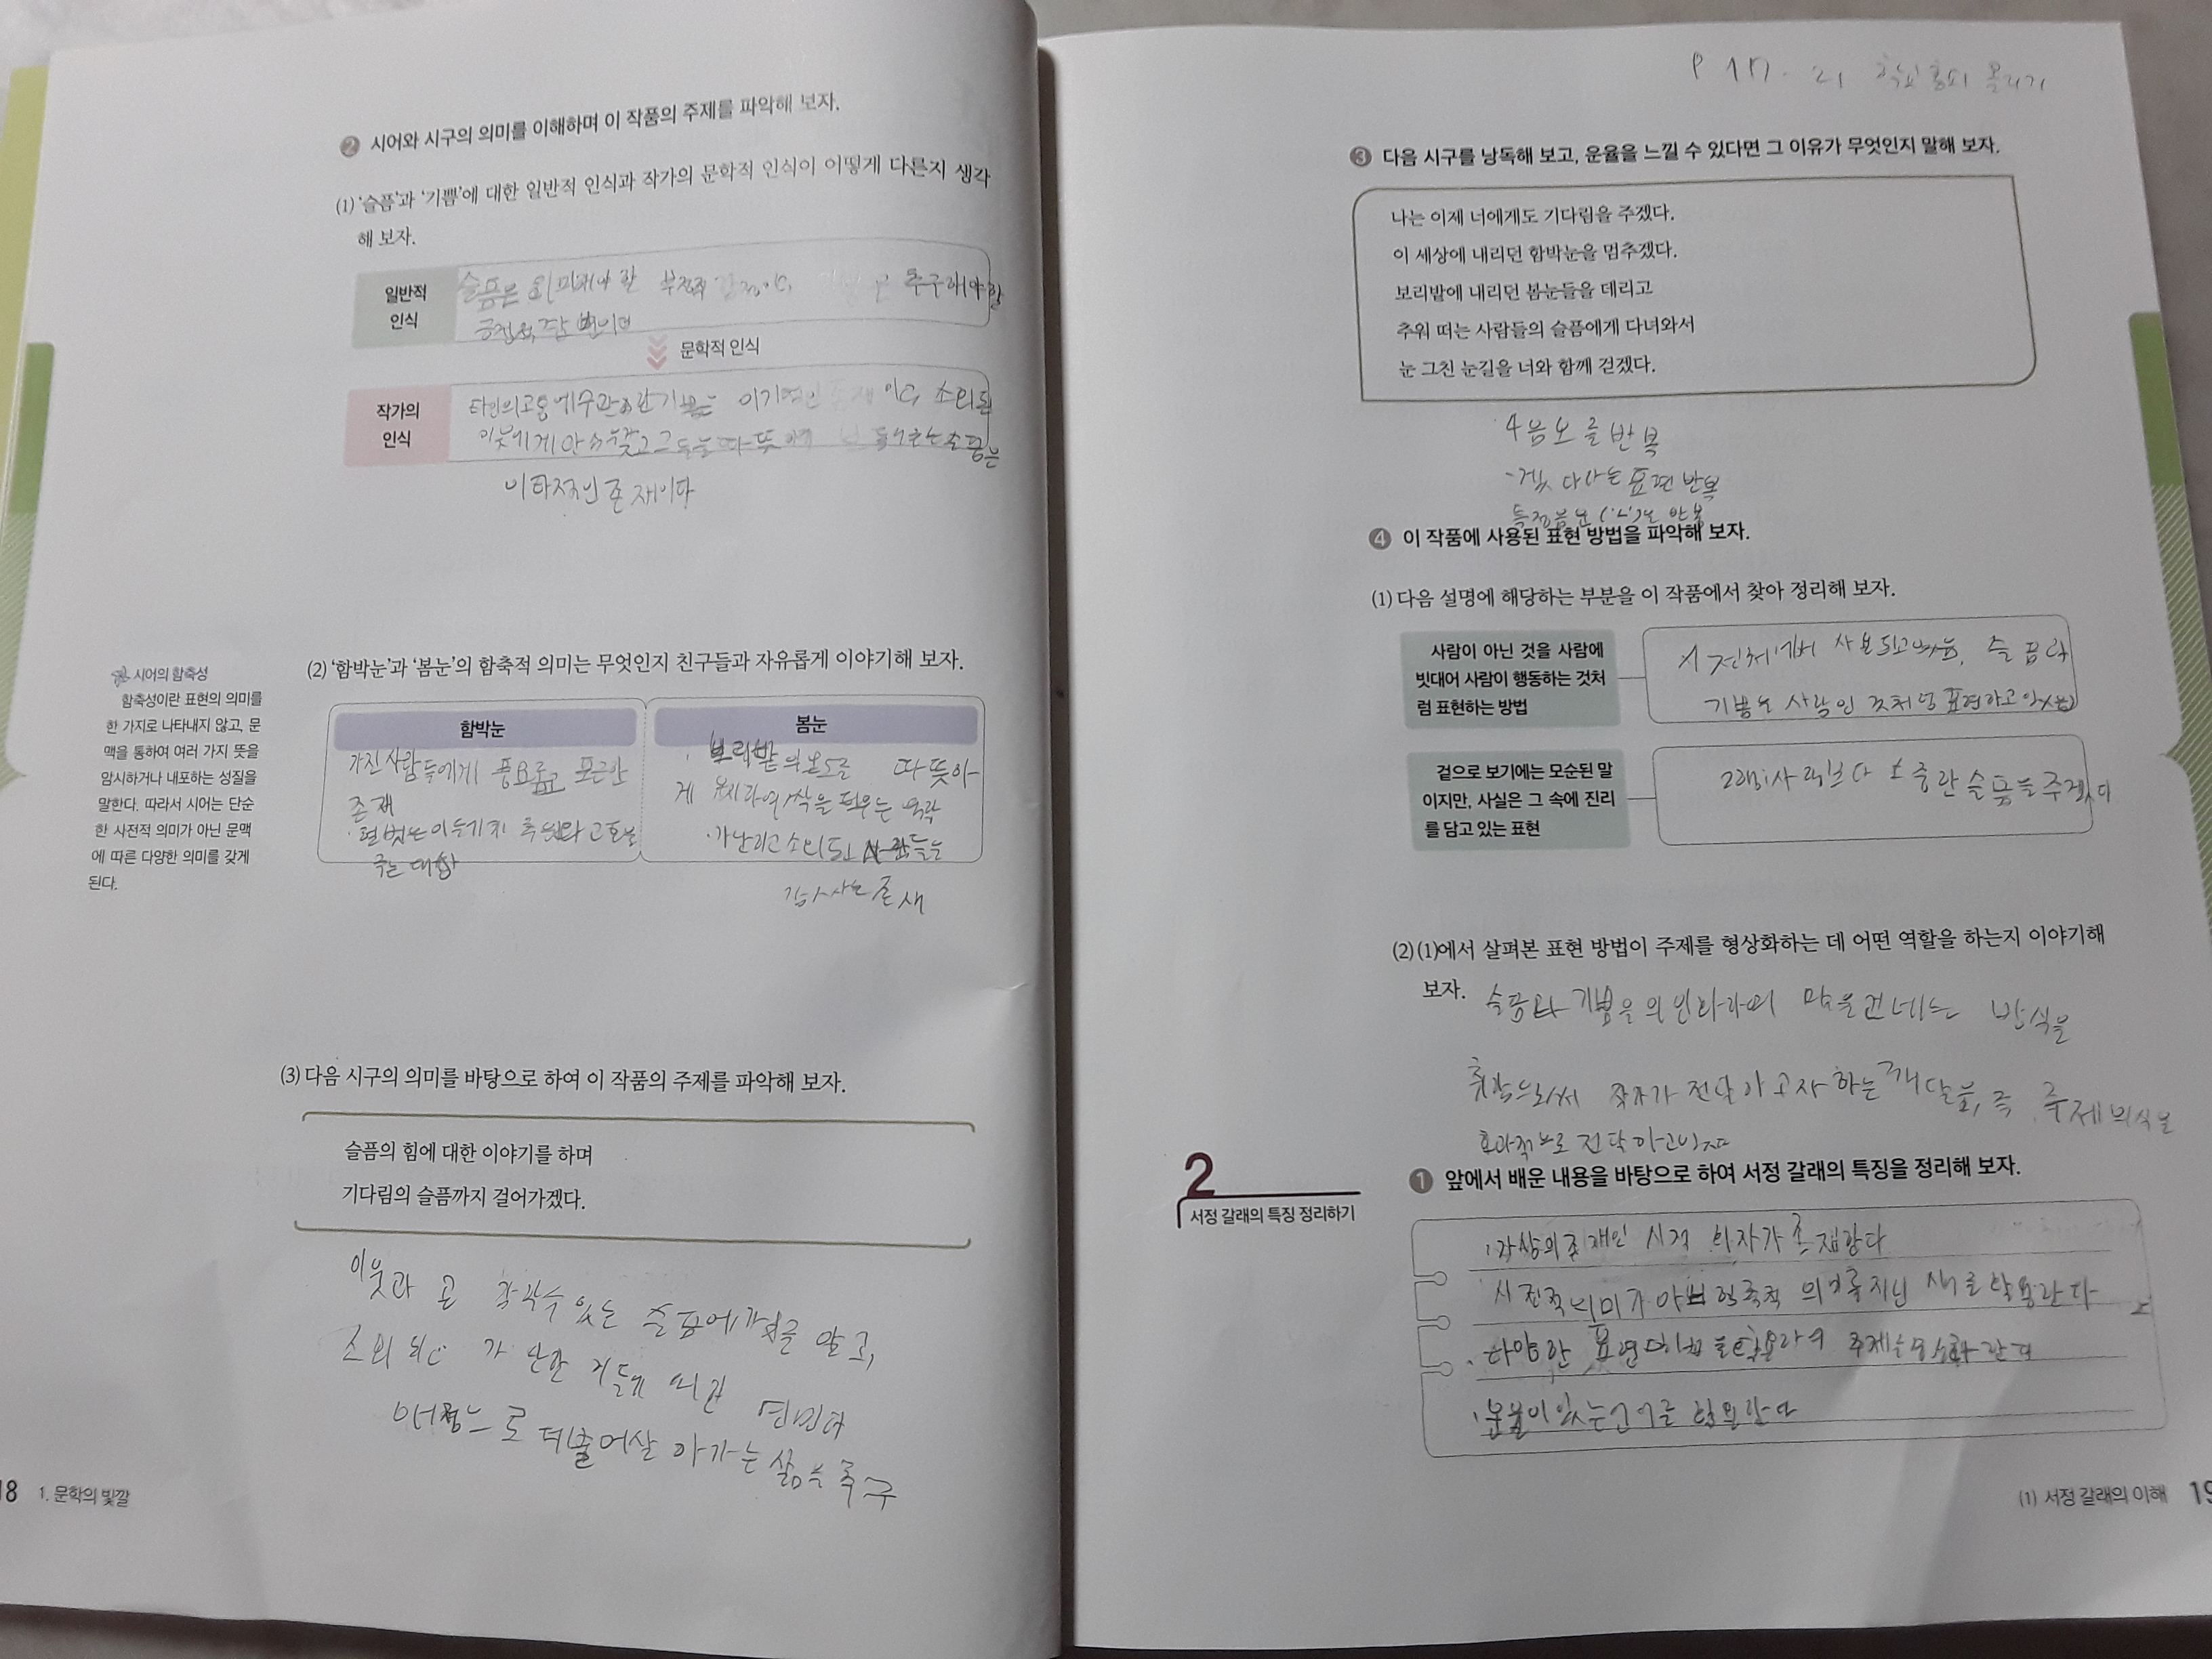 ❷ 시어와 시구의 의미를 이해하며 이 작품의 주제를 파악해 보자.
(1) '슬픔'과 '기쁨'에 대한 일반적 인식과 작가의 문학적 인식이 어떻게 다른지 생각
해 보자.
일반적
인식
슬픔은 회피해야 할 부정적 추구해야 할
문학적 인식
작가의
인식
타인의 고통에 무관심한 기쁨은 이기적인 존재이다 소외된
이웃에게 그들을 따뜻하게 슬픔은
이타적인 존재이다
(2) '함박눈'과 '봄눈'의 함축적 의미는 무엇인지 친구들과 자유롭게 이야기해 보자.
시어의 함축성
함축성이란 표현의 의미를
한 가지로 나타내지 않고, 문
맥을 통하여 여러 가지 뜻을
암시하거나 내포하는 성질을
말한다. 따라서 시어는 단순
한 사전적 의미가 아닌 문맥
에 따른 다양한 의미를 갖게
된다.
함박눈
가진 사람들에게 풍요롭고 포근한
존재
헐벗은 이들에게 추위와 고통을
주는 대상
봄눈
· 보리밭의 온도를 따뜻하
게 싹을 틔우는 역할
· 가난하고 소외된 사람들을
감싸는 존재
(3) 다음 시구의 의미를 바탕으로 하여 이 작품의 주제를 파악해 보자.
슬픔의 힘에 대한 이야기를 하며
기다림의 슬픔까지 걸어가겠다.
이웃과 함께할 수 있는 슬픔의 알고,
소외되고 가난한 이들에 대한 연민과
애정으로 더불어 살아가는 삶을 추구
18 1. 문학의 빛깔
P 17 - 21
❸ 다음 시구를 낭독해 보고, 운율을 느낄 수 있다면 그 이유가 무엇인지 말해 보자.
나는 이제 너에게도 기다림을 주겠다.
이 세상에 내리던 함박눈을 멈추겠다.
보리밭에 내리던 봄눈들을 데리고
추워 떠는 사람들의 슬픔에게 다녀와서
눈 그친 눈길을 너와 함께 걷겠다.
4음보를 반복
-겠다 라는 표현 반복
특정 음운 ('ㄴ')을 반복
❹ 이 작품에 사용된 표현 방법을 파악해 보자.
(1) 다음 설명에 해당하는 부분을 이 작품에서 찾아 정리해 보자.
사람이 아닌 것을 사람에
빗대어 사람이 행동하는 것처
럼 표현하는 방법
시 전체에서 사용되고 있음, 슬픔과
기쁨을 사람인 것처럼 표현하고 있음
겉으로 보기에는 모순된 말
이지만, 사실은 그 속에 진리
를 담고 있는 표현
사랑보다 소중한 슬픔을 주겠다
(2) (1)에서 살펴본 표현 방법이 주제를 형상화하는 데 어떤 역할을 하는지 이야기해
보자. 슬픔과 기쁨을 의인화하여 말을 건네는 방식을
취함으로써 작가가 전달하고자 하는 깨달음, 즉 주제 의식을
효과적으로 전달하고 있다
2
서정 갈래의 특징 정리하기
❶ 앞에서 배운 내용을 바탕으로 하여 서정 갈래의 특징을 정리해 보자.
· 가상의 존재인 시적 화자가 존재한다
사전적 의미가 아닌 함축적 의미를 지닌 시어를 활용한다
· 다양한 표현 방법을 활용하여 주제를 형상화한다
· 운율이 있는 언어를 활용한다
(1) 서정 갈래의 이해 19